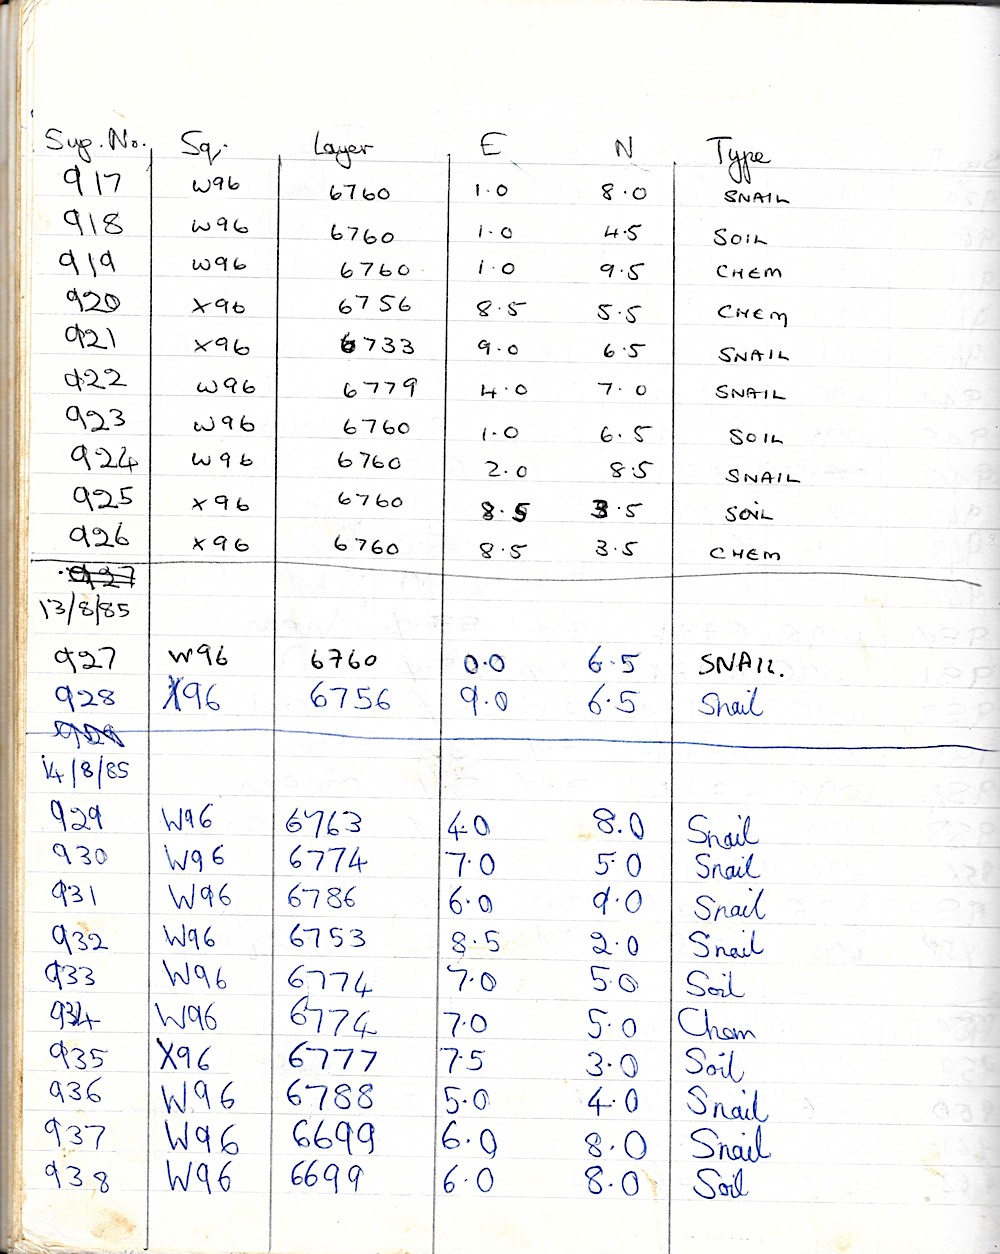 Sup. No. Sq. Layer E N Type
917 W96 6760 1.0 8.0 SNAIL
918 W96 6760 1.0 4.5 SOIL
919 W96 6760 1.0 9.5 CHEM
920 X96 6756 8.5 5.5 CHEM
921 X96 6733 9.0 6.5 SNAIL
922 W96 6779 4.0 7.0 SNAIL
923 W96 6760 1.0 6.5 SOIL
924 W96 6760 2.0 8.5 SNAIL
925 X96 6760 8.5 3.5 SOIL
926 X96 6760 8.5 3.5 CHEM
927
13/8/85
927 W96 6760 0.0 6.5 SNAIL.
928 X96 6756 9.0 6.5 Snail
929
14/8/85
929 W96 6763 4.0 8.0 Snail
930 W96 6774 7.0 5.0 Snail
931 W96 6786 6.0 9.0 Snail
932 W96 6753 8.5 2.0 Snail
933 W96 6774 7.0 5.0 Soil
934 W96 6774 7.0 5.0 Chem
935 X96 6777 7.5 3.0 Soil
936 W96 6788 5.0 4.0 Snail
937 W96 6699 6.0 8.0 Snail
938 W96 6699 6.0 8.0 Soil